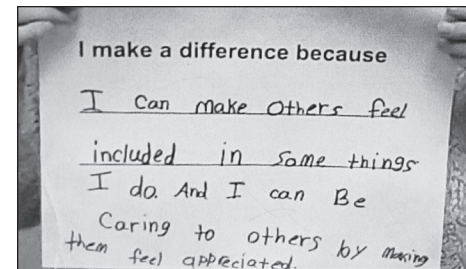 I make a difference because
I Can make Others feel
included in Some things
I do. And I can Be
Caring to others by making
them feel appreciated.